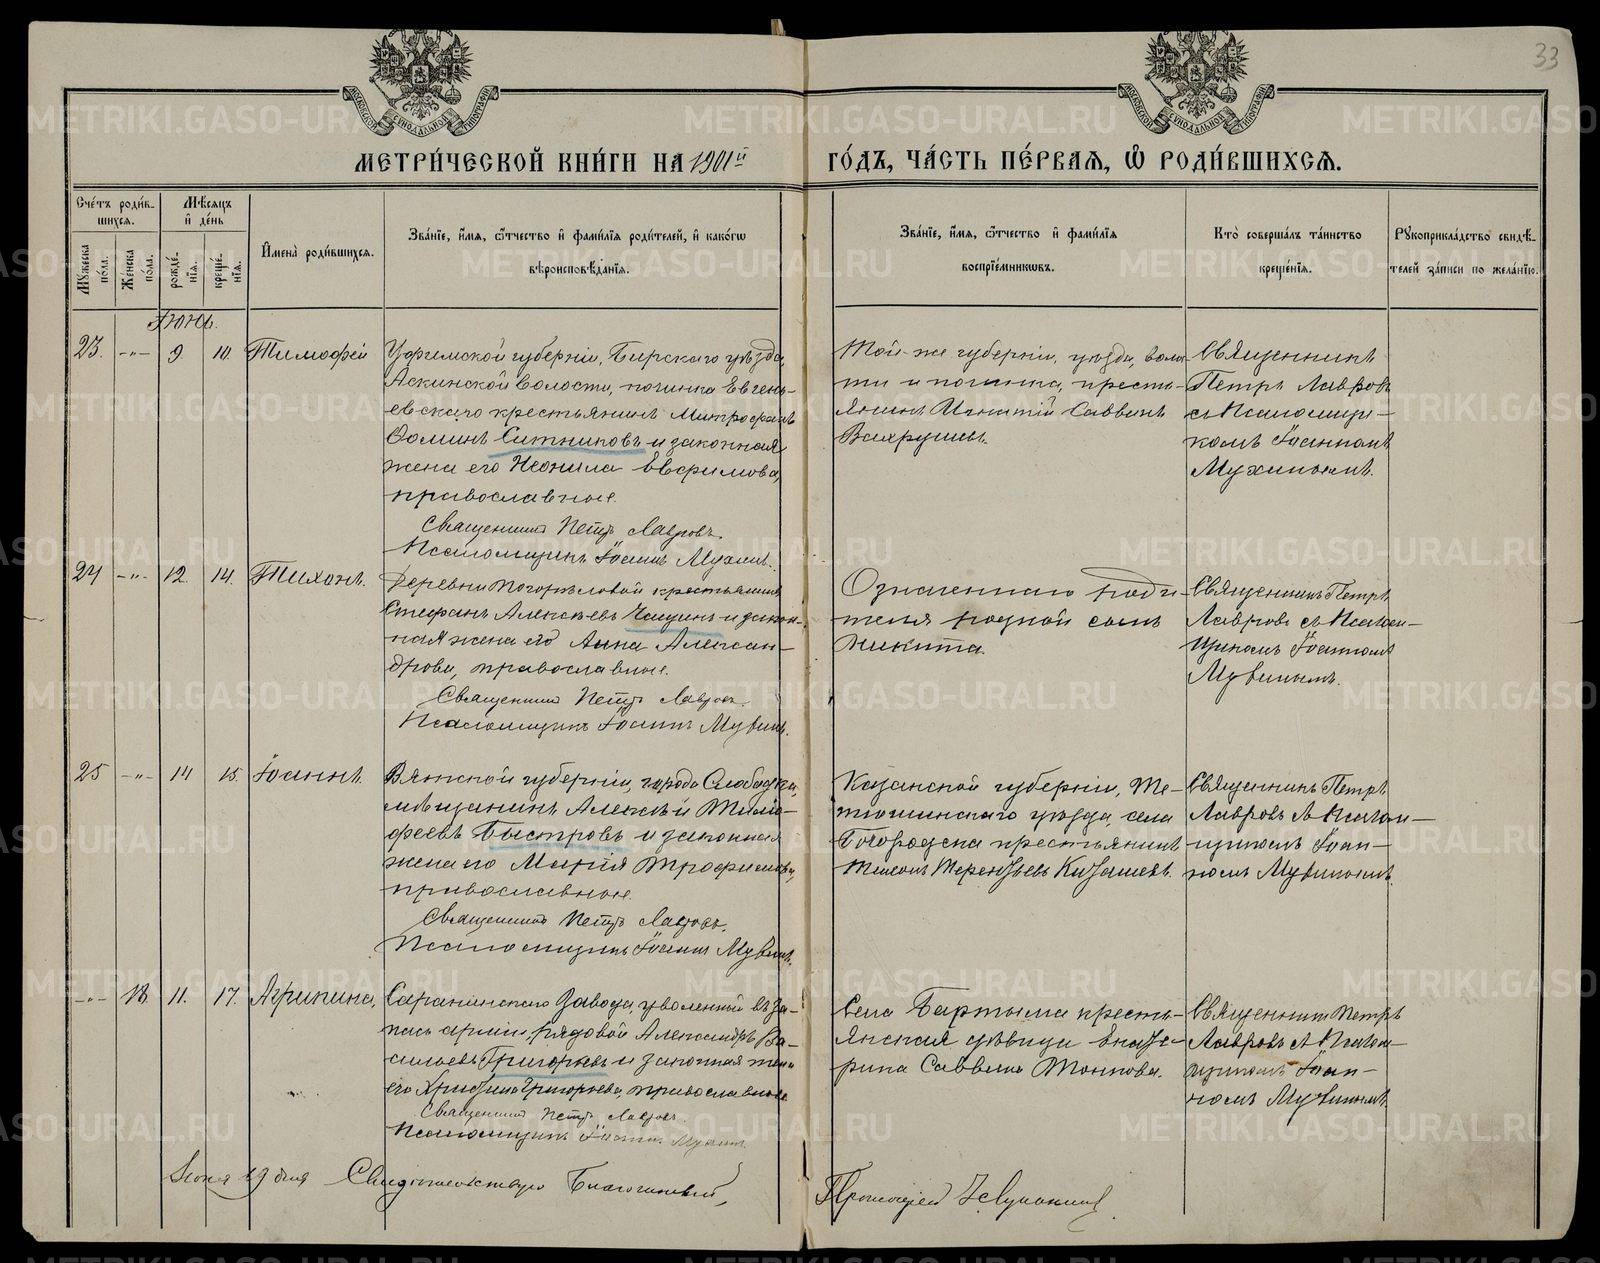 33
МЕТРИ́ЧЕСКОЙ КНИ́ГИ НА 1901й ГО́ДЪ, ЧА́СТЬ ПЕ́РВАЯ, Ѽ РОДИ́ВШИХСЯ.
Сче́тъ роди́в-
шихся.
Му́жеска по́ла.
Же́нска по́ла.
Мѣсяцъ и де́нь
рожде́нія.
креще́нія.
Имена̀ роди́вшихся.
Зва́ніе, и́мя, ѻ҆́тчество и҆ фами́лія роди́телей, и҆ како́гѡ
вѣроисповѣ́данія.
Зва́ніе, и́мя, ѻ҆́тчество и҆ фами́лія
воспріе́мниковъ.
Кто̀ соверша́лъ та́инство
креще́нія.
Рукоприкла́дство свидѣ́-
телей за́писи по жела́нію.
Іюнь.
23. -"- 9. 10. Тимофей
Уфимской губерніи, Бирскаго уѣзда,
Аскинской волости, починка Евгень-
евскаго крестьянинъ Митрофанъ
Ѳоминъ Ситниковъ и законная
жена его Неонила Евфимова,
православные.
Священникъ Петръ Лавровъ.
Псаломщикъ Іоаннъ Мухинъ.
Той-же губерніи, уѣзда, волос-
ти и починка, кресть-
янинъ Игнатій Саввинъ
Вахрушевъ.
Священникъ
Петръ Лавровъ
съ Псаломщи-
комъ Іоанномъ
Мухинымъ.
24 -"- 12. 14. Тихонъ.
Деревни Погорѣловой крестьянинъ
Стефанъ Алексѣевъ Чащинъ и закон-
ная жена его Анна Алексан-
дрова, православные.
Священникъ Петръ Лавровъ.
Псаломщикъ Іоаннъ Мухинъ.
Означеннаго роди-
теля родной сынъ
Никита.
Священникъ Петръ
Лавровъ съ Псалом-
щикомъ Іоанномъ
Мухинымъ.
25 -"- 14 15. Іоаннъ.
Вятской губерніи, города Слободска,
мѣщанинъ Алексѣй Тимо-
феевъ Быстровъ и законная
жена его Марія Трофимова,
православные.
Священникъ Петръ Лавровъ.
Псаломщикъ Іоаннъ Мухинъ.
Казанской губерніи, Те-
тюшинскаго уѣзда, села
Богородска крестьянинъ
Терентьевъ
Священникъ Петръ
Лавровъ съ Псалом-
щикомъ Іоан-
номъ Мухинымъ.
-"- 18. 11. 17. Агрипина,
Саранинскаго Завода, уволенный въ за-
пасъ арміи, рядовой Александръ Ва-
сильевъ Григорьевъ и законная жена
его Христина Григорьева, православные
Священникъ Петръ Лавровъ.
Псаломщикъ Іоаннъ Мухинъ.
Села Бартыма кресть-
янская дѣвица Екате-
рина Саввина
Священникъ Петръ
Лавровъ съ Псалом-
щикомъ Іоан-
номъ Мухинымъ.
Іюня 29 дня Свидѣтельствую Благочинный,
Протоіерей